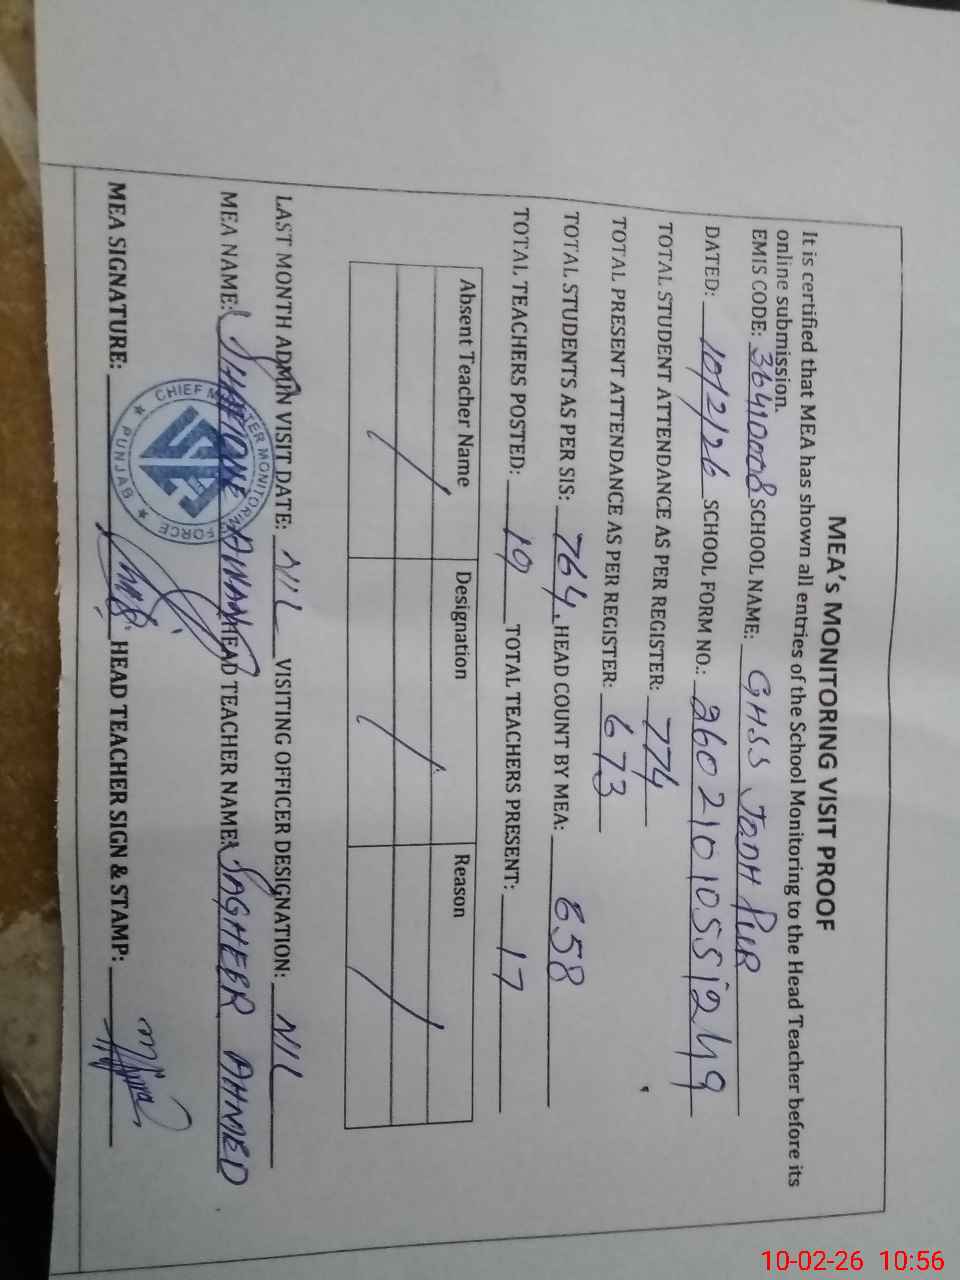 MEA's MONITORING VISIT PROOF
It is certified that MEA has shown all entries of the School Monitoring to the Head Teacher before its
online submission.
EMIS CODE: 36410008 SCHOOL NAME: GHSS JODH PUR
DATED: 10/2/26 SCHOOL FORM NO.: 26021010551249
TOTAL STUDENT ATTENDANCE AS PER REGISTER: 774
TOTAL PRESENT ATTENDANCE AS PER REGISTER: 673
TOTAL STUDENTS AS PER SIS: 764 HEAD COUNT BY MEA: 658
TOTAL TEACHERS POSTED: 19 TOTAL TEACHERS PRESENT: 17
Absent Teacher Name Designation Reason
LAST MONTH ADMIN VISIT DATE: NIL VISITING OFFICER DESIGNATION: NIL
MEA NAME: AWAN HEAD TEACHER NAME: SAGHEER AHMED
CHIEF MINISTER MONITORING FORCE
PUNJAB
MEA SIGNATURE: HEAD TEACHER SIGN & STAMP:
10-02-26 10:56